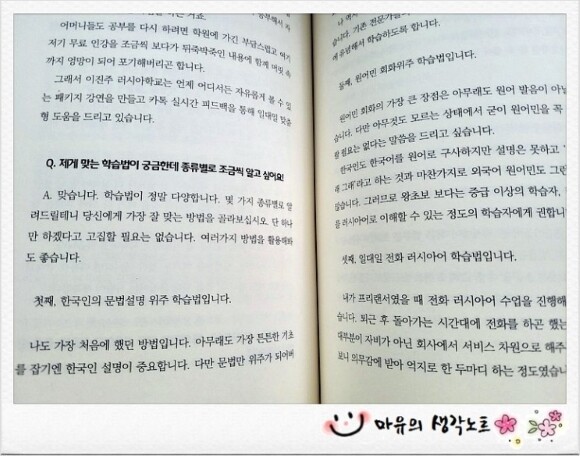 어머니들도 공부를 다시 하려면 학원에 가긴 부담스럽고 여기
저기 무료 인강을 조금씩 보다가 뒤죽박죽인 내용에 함께 머릿속
까지 엉망이 되어 포기해버리곤 합니다.
그래서 이진주 러시아학교는 언제 어디서든 자유롭게 볼 수 있
는 패키지 강연을 만들고 카톡 실시간 피드백을 통해 일대일 맞춤
형 도움을 드리고 있습니다.
Q. 제게 맞는 학습법이 궁금한데 종류별로 조금씩 알고 싶어요!
A. 맞습니다. 학습법이 정말 다양합니다. 몇 가지 종류별로 알
려드릴테니 당신에게 가장 잘 맞는 방법을 골라보십시오. 단 하나
만 하겠다고 고집할 필요는 없습니다. 여러가지 방법을 활용해봐
도 좋습니다.
첫째, 한국인의 문법설명 위주 학습법입니다.
나도 가장 처음에 했던 방법입니다. 아무래도 가장 튼튼한 기초
를 잡기엔 한국인 설명이 중요합니다. 다만 문법만 위주가 되어버
학습하도록 합니다.
둘째, 원어민 회화위주 학습법입니다.
원어민 회화의 가장 큰 장점은 아무래도 원어 발음이 아닐
습니다. 다만 아무것도 모르는 상태에서 굳이 원어민을 꼭
할 필요는 없다는 말씀을 드리고 싶습니다.
한국인도 한국어를 원어로 구사하지만 설명은 못하고 '
래 그래'라고 하는 것과 마찬가지로 외국어 원어민도 그런
많습니다. 그러므로 왕초보 보다는 중급 이상의 학습자,
을 러시아어로 이해할 수 있는 정도의 학습자에게 권합니
셋째, 일대일 전화 러시아어 학습법입니다.
내가 프리랜서였을 때 전화 러시아어 수업을 진행해
습니다. 퇴근 후 돌아가는 시간대에 전화를 하곤 했는
대부분이 자비가 아닌 회사에서 서비스 차원으로 해주
보니 의무감에 받아 억지로 한 두마디 하는 정도였습니
마유의 생각노트